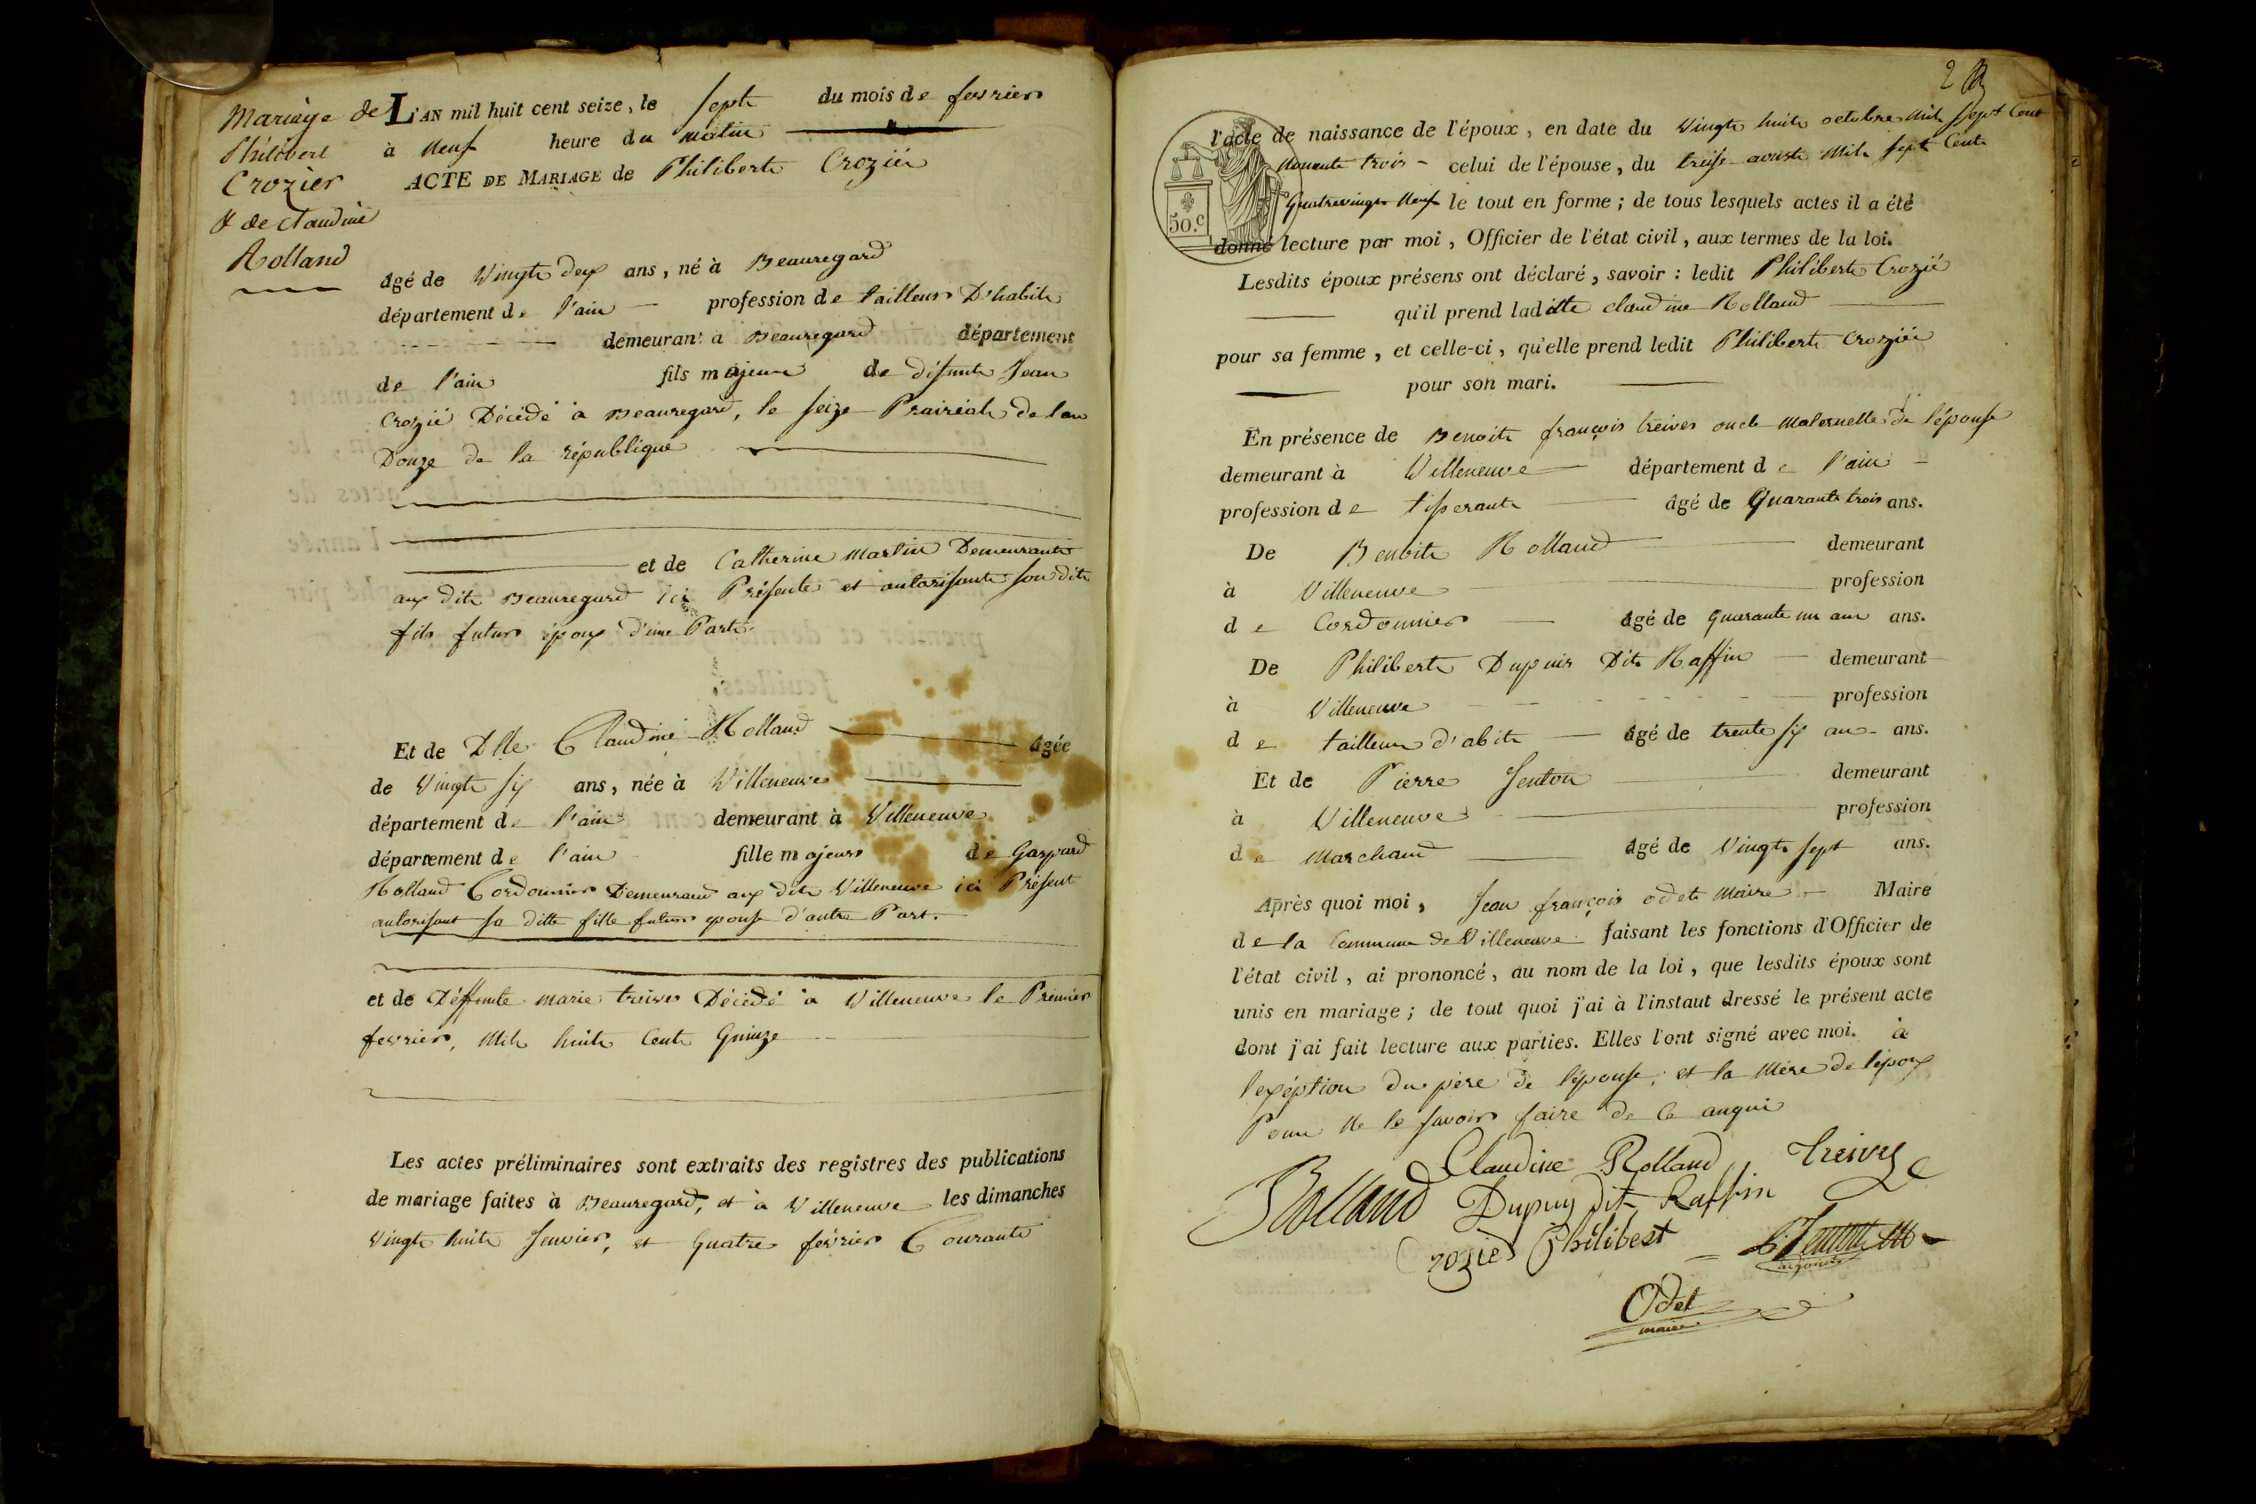 Mariage de
Philibert
Crozier
& de claudine
Rolland
L'AN mil huit cent seize, le sept du mois de fevrier
à neuf heure du matin
ACTE DE MARIAGE de Philibert Crozié
âgé de vingt deux ans, né à Beauregard
département de l'ain profession de tailleur D'habit
demeurant à Beauregard département
de l'ain fils majeur de défunt Jean
Crozié Décédé à Beauregard, le seize Prairial de l'an
Douze de la république
et de Catherine Martin Demeurante
aux dit Beauregard ici Présente et autorisante son dit
fils futur époux d'une Part.
Et de Dlle Claudine Rolland âgée
de vingt six ans, née à Villeneuve
département de l'ain demeurant à Villeneuve
département de l'ain fille majeur de Gaspard
Rolland Cordonnier Demeurand aux dit Villeneuve ici Présent
autorisant sa ditte fille future epouse d'autre Part.
et de Déffunte marie treives Décédé à Villeneuve le Premier
fevrier, Mil huit Cent Quinze
Les actes préliminaires sont extraits des registres des publications
de mariage faites à Beauregard, et à Villeneuve les dimanches
vingt huit Janvier, et quatre février Courant
2
50.c
l'acte de naissance de l'époux, en date du vingt huit octobre Mil sept Cent
nonante trois - celui de l'épouse, du treise aoust Mil sept Cent
Quatrevingt neuf le tout en forme; de tous lesquels actes il a été
donné lecture par moi, Officier de l'état civil, aux termes de la loi.
Lesdits époux présens ont déclaré, savoir: ledit Philibert Crozié
qu'il prend laditte claudine Rolland
pour sa femme, et celle-ci, qu'elle prend ledit Philibert Crozié
pour son mari.
En présence de Benoit françois treives oncle maternelle de l'épouse
demeurant à Villeneuve département de l'ain
profession de tisserant âgé de Quarante trois ans.
De Benoit Rolland demeurant
à Villeneuve profession
de Cordonnier âgé de quarante un an ans.
De Philibert Dupuis Dit Raffin demeurant
à Villeneuve profession
de tailleur d'abit âgé de trente six an ans.
Et de Pierre Jenton demeurant
à Villeneuve profession
de Marchand âgé de vingt sept ans.
Après quoi moi, Jean françois odet Maire Maire
de la Commune de Villeneuve faisant les fonctions d'Officier de
l'état civil, ai prononcé, au nom de la loi, que lesdits époux sont
unis en mariage; de tout quoi j'ai à l'instaut dressé le présent acte
dont j'ai fait lecture aux parties. Elles l'ont signé avec moi. à
l'exéption du père de l'épouse, et la Mère de l'époux
Pour ne le savoir faire de Ce
Claudine Rolland Treives
Rolland Dupuy dit Raffin
Crozier Philibert P. Jenton
Odet
maire